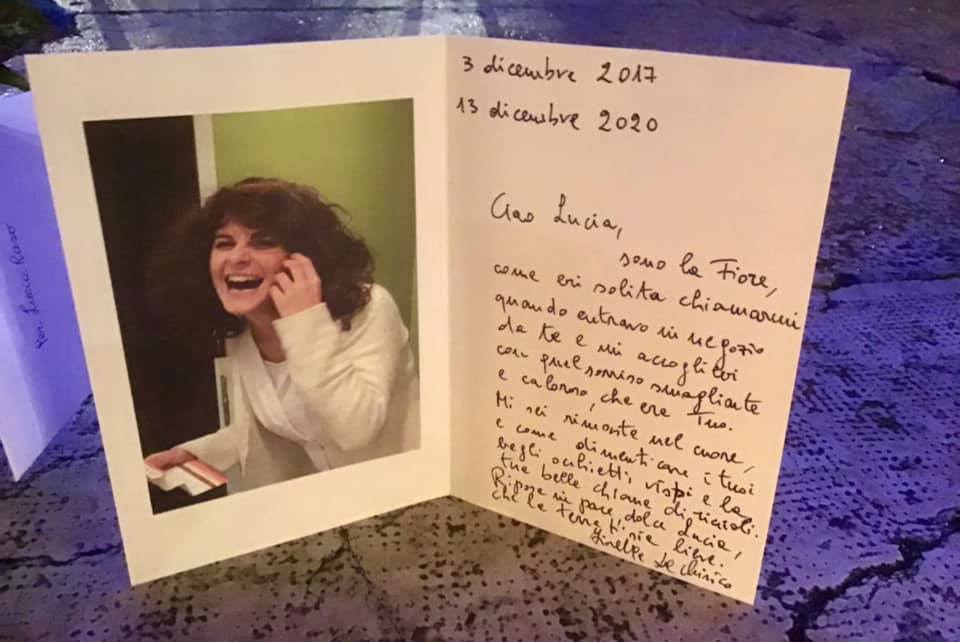 Per Lucia Raso
3 dicembre 2017
13 dicembre 2020
Ciao Lucia,
sono la Fiore,
come eri solita chiamarmi
quando entravo in negozio
da te e mi accoglievi
con quel sorriso smagliante
e caloroso, che era Tuo.
Mi sei rimasta nel cuore,
e come dimenticare i tuoi
begli occhietti, vispi e la
tua bella chioma di riccioli.
Riposa in pace, dolce Lucia,
che la terra ti sia lieve.
De Chirico